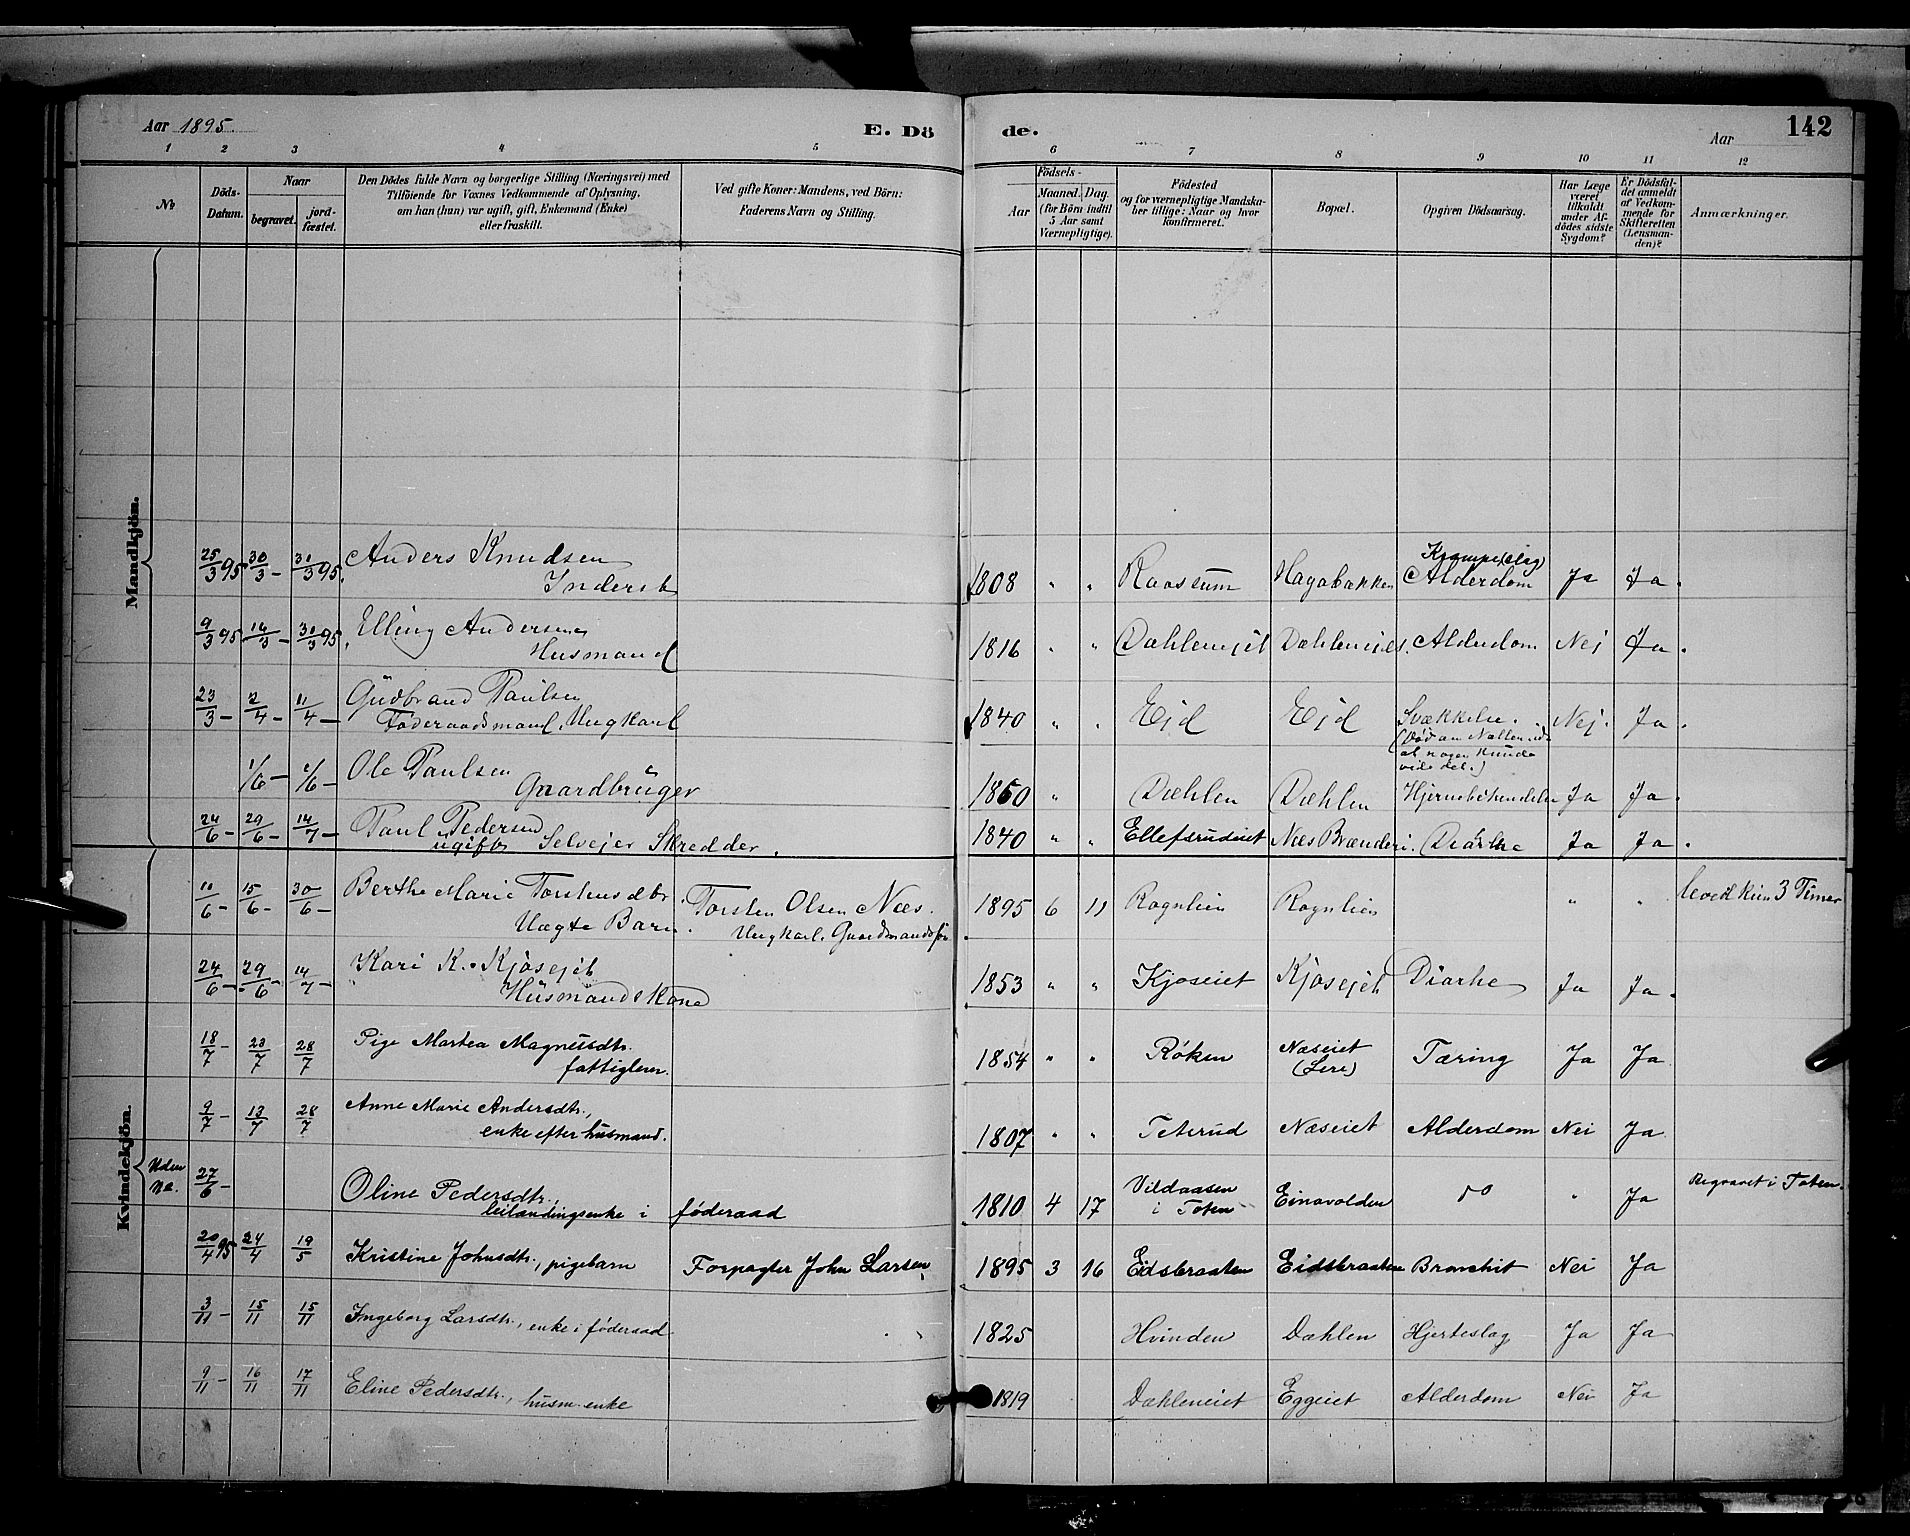 Aar 1895.
E. Dö
de.
Aar
142
1 2 3 4 5 6 7 8 9 10 11 12
№
Döds-Datum.
Naar
begravet.
jord-fæstet.
Den Dödes fulde Navn og borgerlige Stilling (Næringsvei) med
Tilföiende for Voxnes Vedkommende af Oplysning,
om han (hun) var ugift, gift, Enkemand (Enke)
eller fraskilt.
Ved gifte Koner: Mandens, ved Börn:
Faderens Navn og Stilling.
Födsels-
Aar
Maaned. Dag.
(for Börn indtil
5 Aar samt
Værnepligtige).
Födested
og for værnepligtige Mandska-
ber tillige: Naar og hvor
konfirmeret.
Bopæl.
Opgiven Dödsaarsag.
Har Læge
været
tilkaldt
under Af-
dödes sidste
Sygdom?
Er Dödsfal-
det anmeldt
af Vedkom-
mende for
Skifteretten
(Lensman-
den)?
Anmærkninger.
Mandkjön.
25/3 95 30/3 – 31/3 95. Anders Knudsen
Inderst
1808 " " Raassum Hagabakken Alderdom Ja Ja.
9/3 95 16/3 – 31/3 95. Elling Andersen
Husmand
1816 " " Dæhlenejet Dæhlenejet. Alderdom Nej Ja.
23/3 – 2/4 – 11/4 – Gudbrand Paulsen
Föderaadsmand, Ungkarl
1840 " " Ejd Ejd Svækkelse. Nej. Ja.
(Död om Natten uden
at nogen kunde
vide det.)
1/6 – 2/6 – Ole Paulsen
Gaardbruger
1860 " Dæhlen Dæhlen Hjernebetændelse Ja Ja.
24/6 – 29/6 – 14/7 – Paul Pedersen
ugift Selvejer Skredder.
1840 " " Ellefsrudeiet Næs Brænderi. Diarhe Ja Ja.
Kvindekjön.
11/6 – 15/6 – 30/6 – Berthe Marie Torstensdtr Torsten Olsen Næs.
Uægte Barn. Ungkarl. Gaardmandssøn
1895 6 11 Rognlien Rognlien " " levede kun 3 Timer
24/6 – 29/6 – 14/7 – Kari K. Kjosejet
Husmandskone
1853 " " Kjoseiet Kjosejet Diarhe Ja Ja.
18/7 – 23/7 28/7 Pige Martea Magnusdtr.
fattiglem.
1854 " " Røken Næseiet Tæring Ja Ja
9/7 – 13/7 28/7 Anne Marie Andersdtr.,
enke efter husmand.
1807 " " Teterud Næseiet Alderdom Nei Ja
Uden
No. 27/6 – Oline Pedersdtr.,
leilændingsenke i föderaad
1810 4 17 Vildaasen
i Toten Einavolden do " Ja Begravet i Toten.
20/4 95 24/4 19/5 Kristine Johnsdtr., pigebarn Forpagter John Larsen
1895 3 16 Eidsbraaten Eidsbraaten Bronchit Nei Ja
3/11 – 15/11 15/11 Ingeborg Larsdtr., enke i föderaad.
1825 Hvinden Dæhlen Hjerteslag Ja Ja
9/11 – 16/11 17/11 Eline Pedersdtr., husm. enke
1819 Dæhleneiet Eggeiet Alderdom Nei Ja